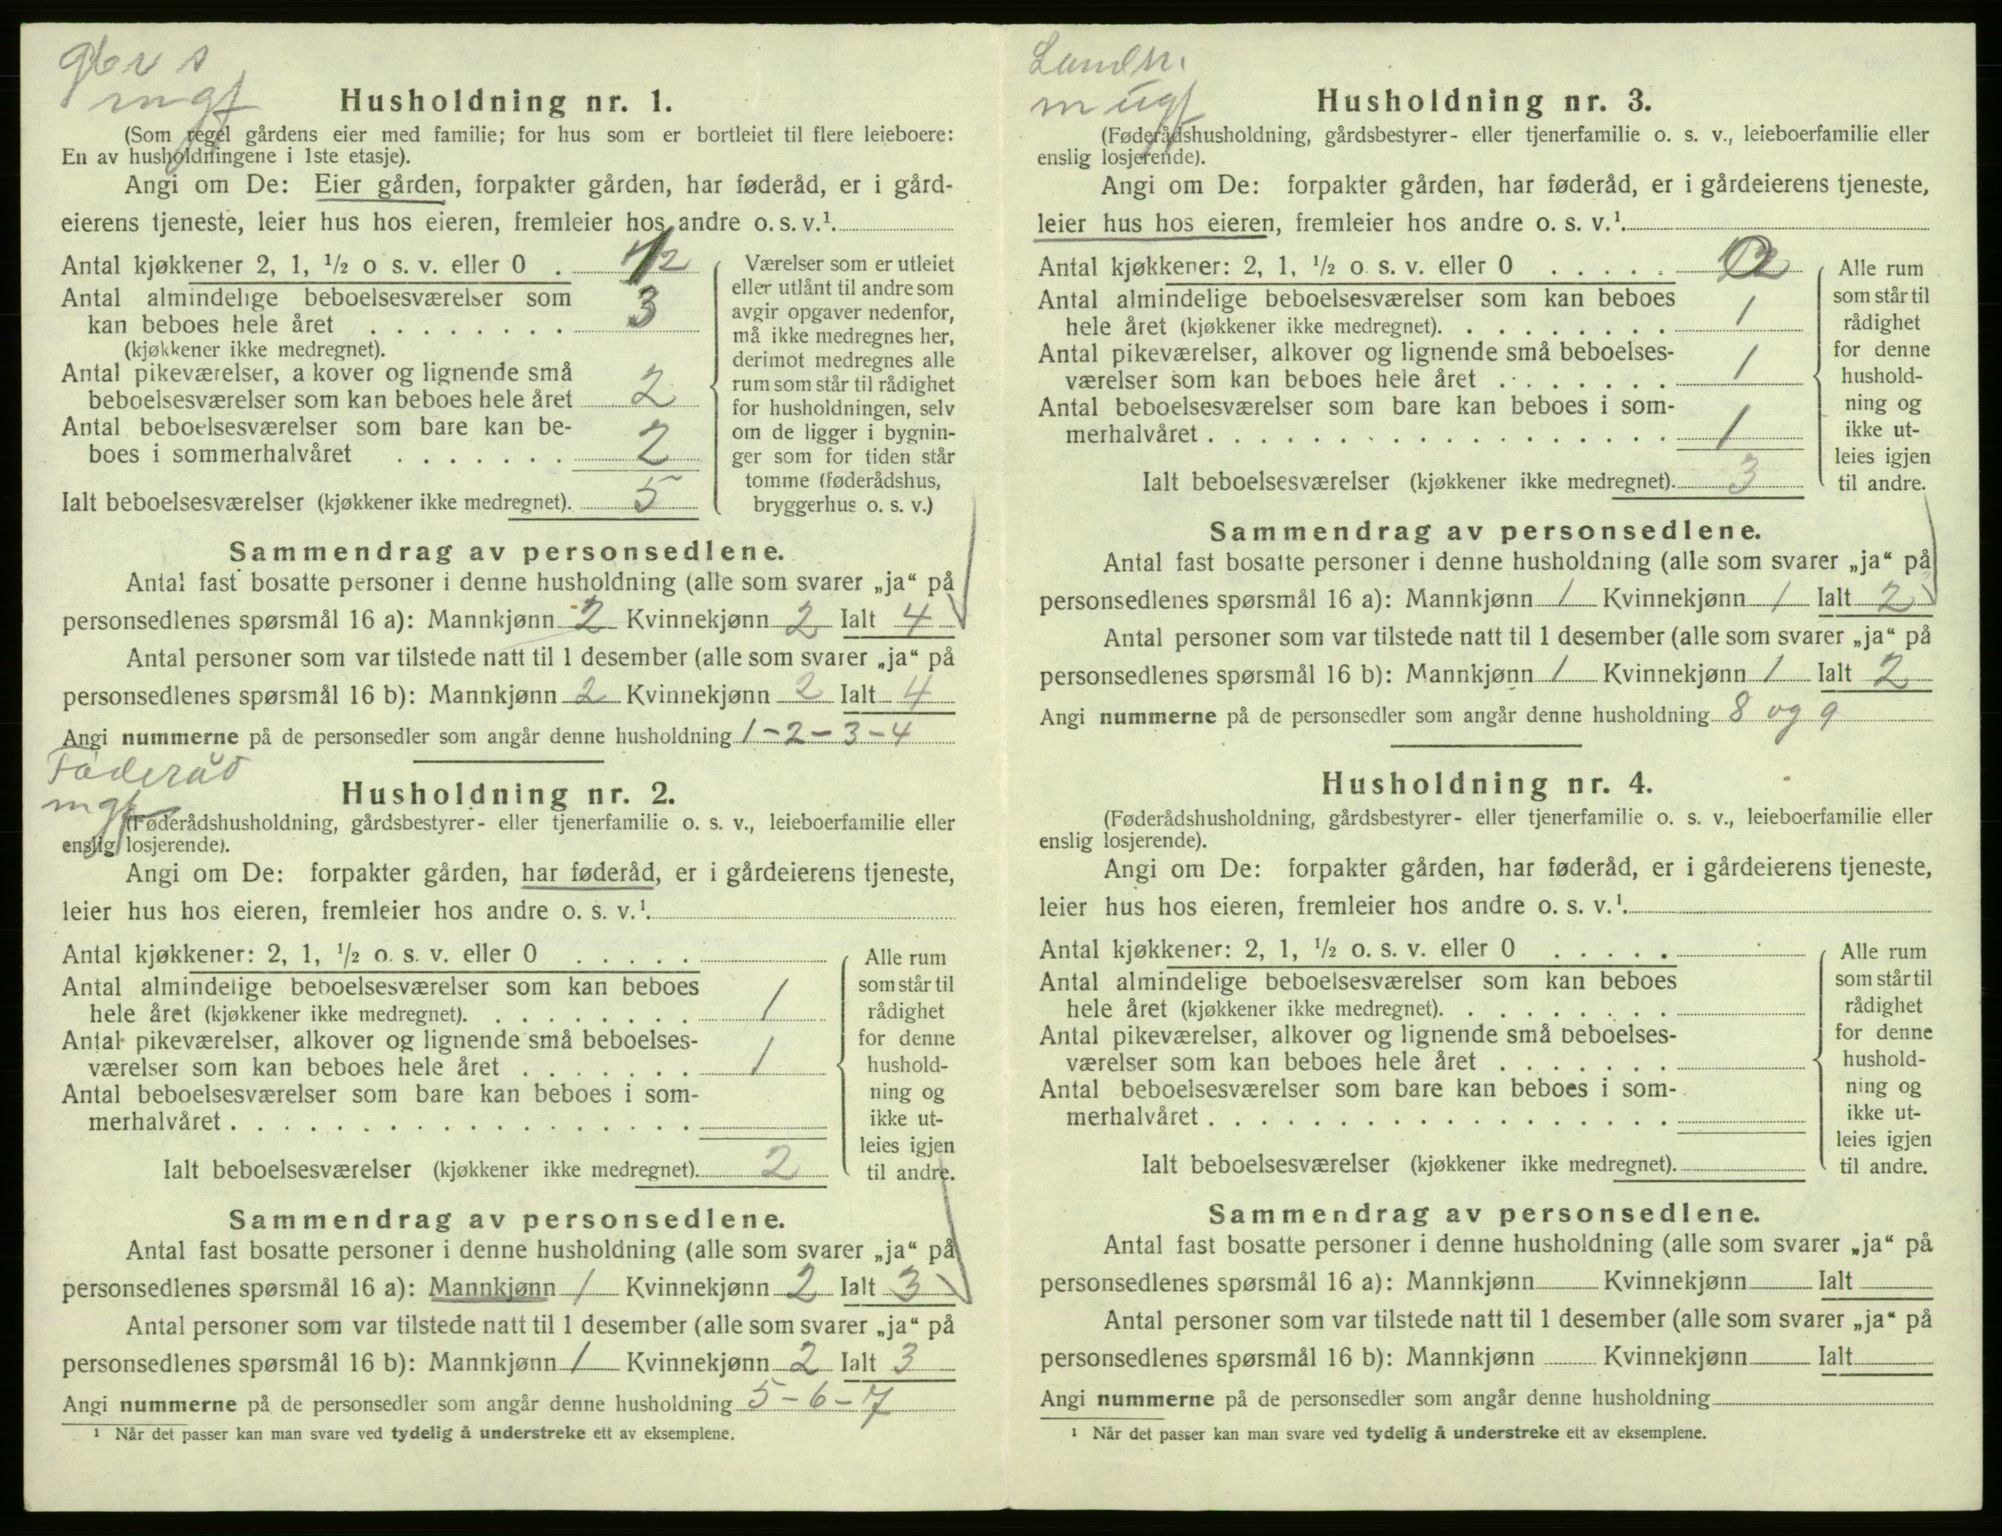 mgf
Husholdning nr. 1.
(Som regel gårdens eier med familie; for hus som er bortleiet til flere leieboere:
En av husholdningene i 1ste etasje).
Angi om De: Eier gården, forpakter gården, har føderåd, er i gård-
eierens tjeneste, leier hus hos eieren, fremleier hos andre o. s. v.¹.
Antal kjøkkener 2, 1, ½ o s. v. eller 0 .
Antal almindelige beboelsesværelser som
kan beboes hele året . . . . . . . . 3
(kjøkkener ikke medregnet).
Antal pikeværelser, a kover og lignende små
beboelsesværelser som kan beboes hele året 2
Antal beboelsesværelser som bare kan be-
boes i sommerhalvåret . . . . . . . 2
Ialt beboelsesværelser (kjøkkener ikke medregnet). 5
Værelser som er utleiet
eller utlånt til andre som
avgir opgaver nedenfor,
må ikke medregnes her,
derimot medregnes alle
rum som står til rådighet
for husholdningen, selv
om de ligger i bygnin-
ger som for tiden står
tomme (føderådshus,
bryggerhus o. s. v.)
Sammendrag av personsedlene.
Antal fast bosatte personer i denne husholdning (alle som svarer „ja“ på
personsedlenes spørsmål 16 a): Mannkjønn 2 Kvinnekjønn 2 Ialt 4
Antal personer som var tilstede natt til 1 desember (alle som svarer „ja“ på
personsedlenes spørsmål 16 b): Mannkjønn 2 Kvinnekjønn 2 Ialt 4
Angi nummerne på de personsedler som angår denne husholdning 1-2-3-4
Føderåd
mgf
Husholdning nr. 2.
(Føderådshusholdning, gårdsbestyrer- eller tjenerfamilie o. s. v., leieboerfamilie eller
enslig losjerende).
Angi om De: forpakter gården, har føderåd, er i gårdeierens tjeneste,
leier hus hos eieren, fremleier hos andre o. s. v.¹.
Antal kjøkkener: 2, 1, ½ o. s. v. eller 0 . . . . .
Antal almindelige beboelsesværelser som kan beboes
hele året (kjøkkener ikke medregnet). . . . . . . . . 1
Antal pikeværelser, alkover og lignende små beboelses-
værelser som kan beboes hele året . . . . . . . 1
Antal beboelsesværelser som bare kan beboes i som-
merhalvåret . . . . . . . . . . . . . . . . . .
Ialt beboelsesværelser (kjøkkener ikke medregnet). 2
Alle rum
som står til
rådighet
for denne
hushold-
ning og
ikke ut-
leies igjen
til andre.
Sammendrag av personsedlene.
Antal fast bosatte personer i denne husholdning (alle som svarer „ja“ på
personsedlenes spørsmål 16 a): Mannkjønn 1 Kvinnekjønn 2 Ialt 3
Antal personer som var tilstede natt til 1 desember (alle som svarer „ja“ på
personsedlenes spørsmål 16 b): Mannkjønn 1 Kvinnekjønn 2 Ialt 3
Angi nummerne på de personsedler som angår denne husholdning 5-6-7
¹ Når det passer kan man svare ved tydelig å understreke ett av eksemplene.
mugf
Husholdning nr. 3.
(Føderådshusholdning, gårdsbestyrer- eller tjenerfamilie o. s. v., leieboerfamilie eller
enslig losjerende).
Angi om De: forpakter gården, har føderåd, er i gårdeierens tjeneste,
leier hus hos eieren, fremleier hos andre o. s. v.¹.
Antal kjøkkener: 2, 1, ½ o. s. v. eller 0 . . . . .
Antal almindelige beboelsesværelser som kan beboes
hele året (kjøkkener ikke medregnet). . . . . . . . . 1
Antal pikeværelser, alkover og lignende små beboelses-
værelser som kan beboes hele året . . . . . . . 1
Antal beboelsesværelser som bare kan beboes i som-
merhalvåret . . . . . . . . . . . . . . . . . . 1
Ialt beboelsesværelser (kjøkkener ikke medregnet). 3
Alle rum
som står til
rådighet
for denne
hushold-
ning og
ikke ut-
leies igjen
til andre.
Sammendrag av personsedlene.
Antal fast bosatte personer i denne husholdning (alle som svarer „ja“ på
personsedlenes spørsmål 16 a): Mannkjønn 1 Kvinnekjønn 1 Ialt 2
Antal personer som var tilstede natt til 1 desember (alle som svarer „ja“ på
personsedlenes spørsmål 16 b): Mannkjønn 1 Kvinnekjønn 1 Ialt 2
Angi nummerne på de personsedler som angår denne husholdning 8 og 9
Husholdning nr. 4.
(Føderådshusholdning, gårdsbestyrer- eller tjenerfamilie o. s. v., leieboerfamilie eller
enslig losjerende).
Angi om De: forpakter gården, har føderåd, er i gårdeierens tjeneste,
leier hus hos eieren, fremleier hos andre o. s. v.¹.
Antal kjøkkener: 2, 1, ½ o. s. v. eller 0 . . . . .
Antal almindelige beboelsesværelser som kan beboes
hele året (kjøkkener ikke medregnet). . . . . . . . .
Antal pikeværelser, alkover og lignende små beboelses-
værelser som kan beboes hele året . . . . . . .
Antal beboelsesværelser som bare kan beboes i som-
merhalvåret . . . . . . . . . . . . . . . . . .
Ialt beboelsesværelser (kjøkkener ikke medregnet).
Alle rum
som står til
rådighet
for denne
hushold-
ning og
ikke ut-
leies igjen
til andre.
Sammendrag av personsedlene.
Antal fast bosatte personer i denne husholdning (alle som svarer „ja“ på
personsedlenes spørsmål 16 a): Mannkjønn Kvinnekjønn Ialt
Antal personer som var tilstede natt til 1 desember (alle som svarer „ja“ på
personsedlenes spørsmål 16 b): Mannkjønn Kvinnekjønn Ialt
Angi nummerne på de personsedler som angår denne husholdning
¹ Når det passer kan man svare ved tydelig å understreke ett av eksemplene.